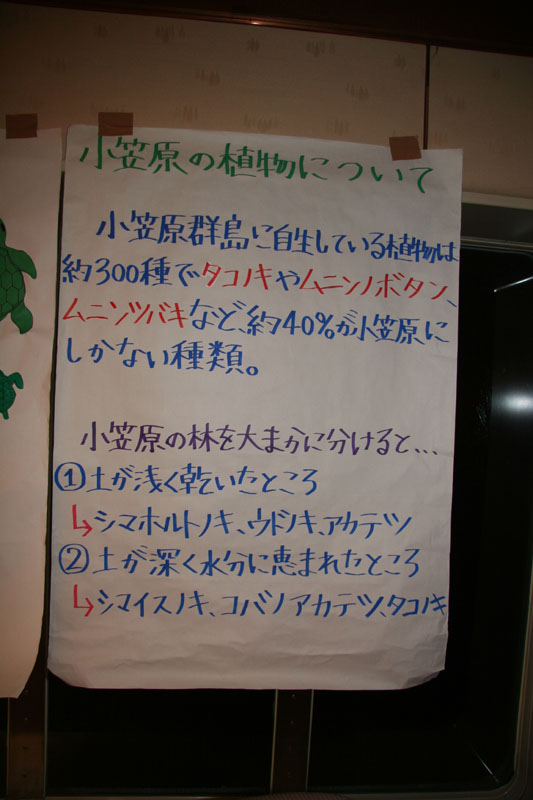 小笠原の植物について
小笠原群島に自生している植物は
約300種でタコノキやムニンノボタン、
ムニンツバキなど、約40%が小笠原に
しかない種類。
小笠原の林を大まかに分けると…
①土が浅く乾いたところ
↳シマホルトノキ、ウドノキ、アカテツ
②土が深く水分に恵まれたところ
↳シマイスノキ、コバノアカテツ、タコノキ